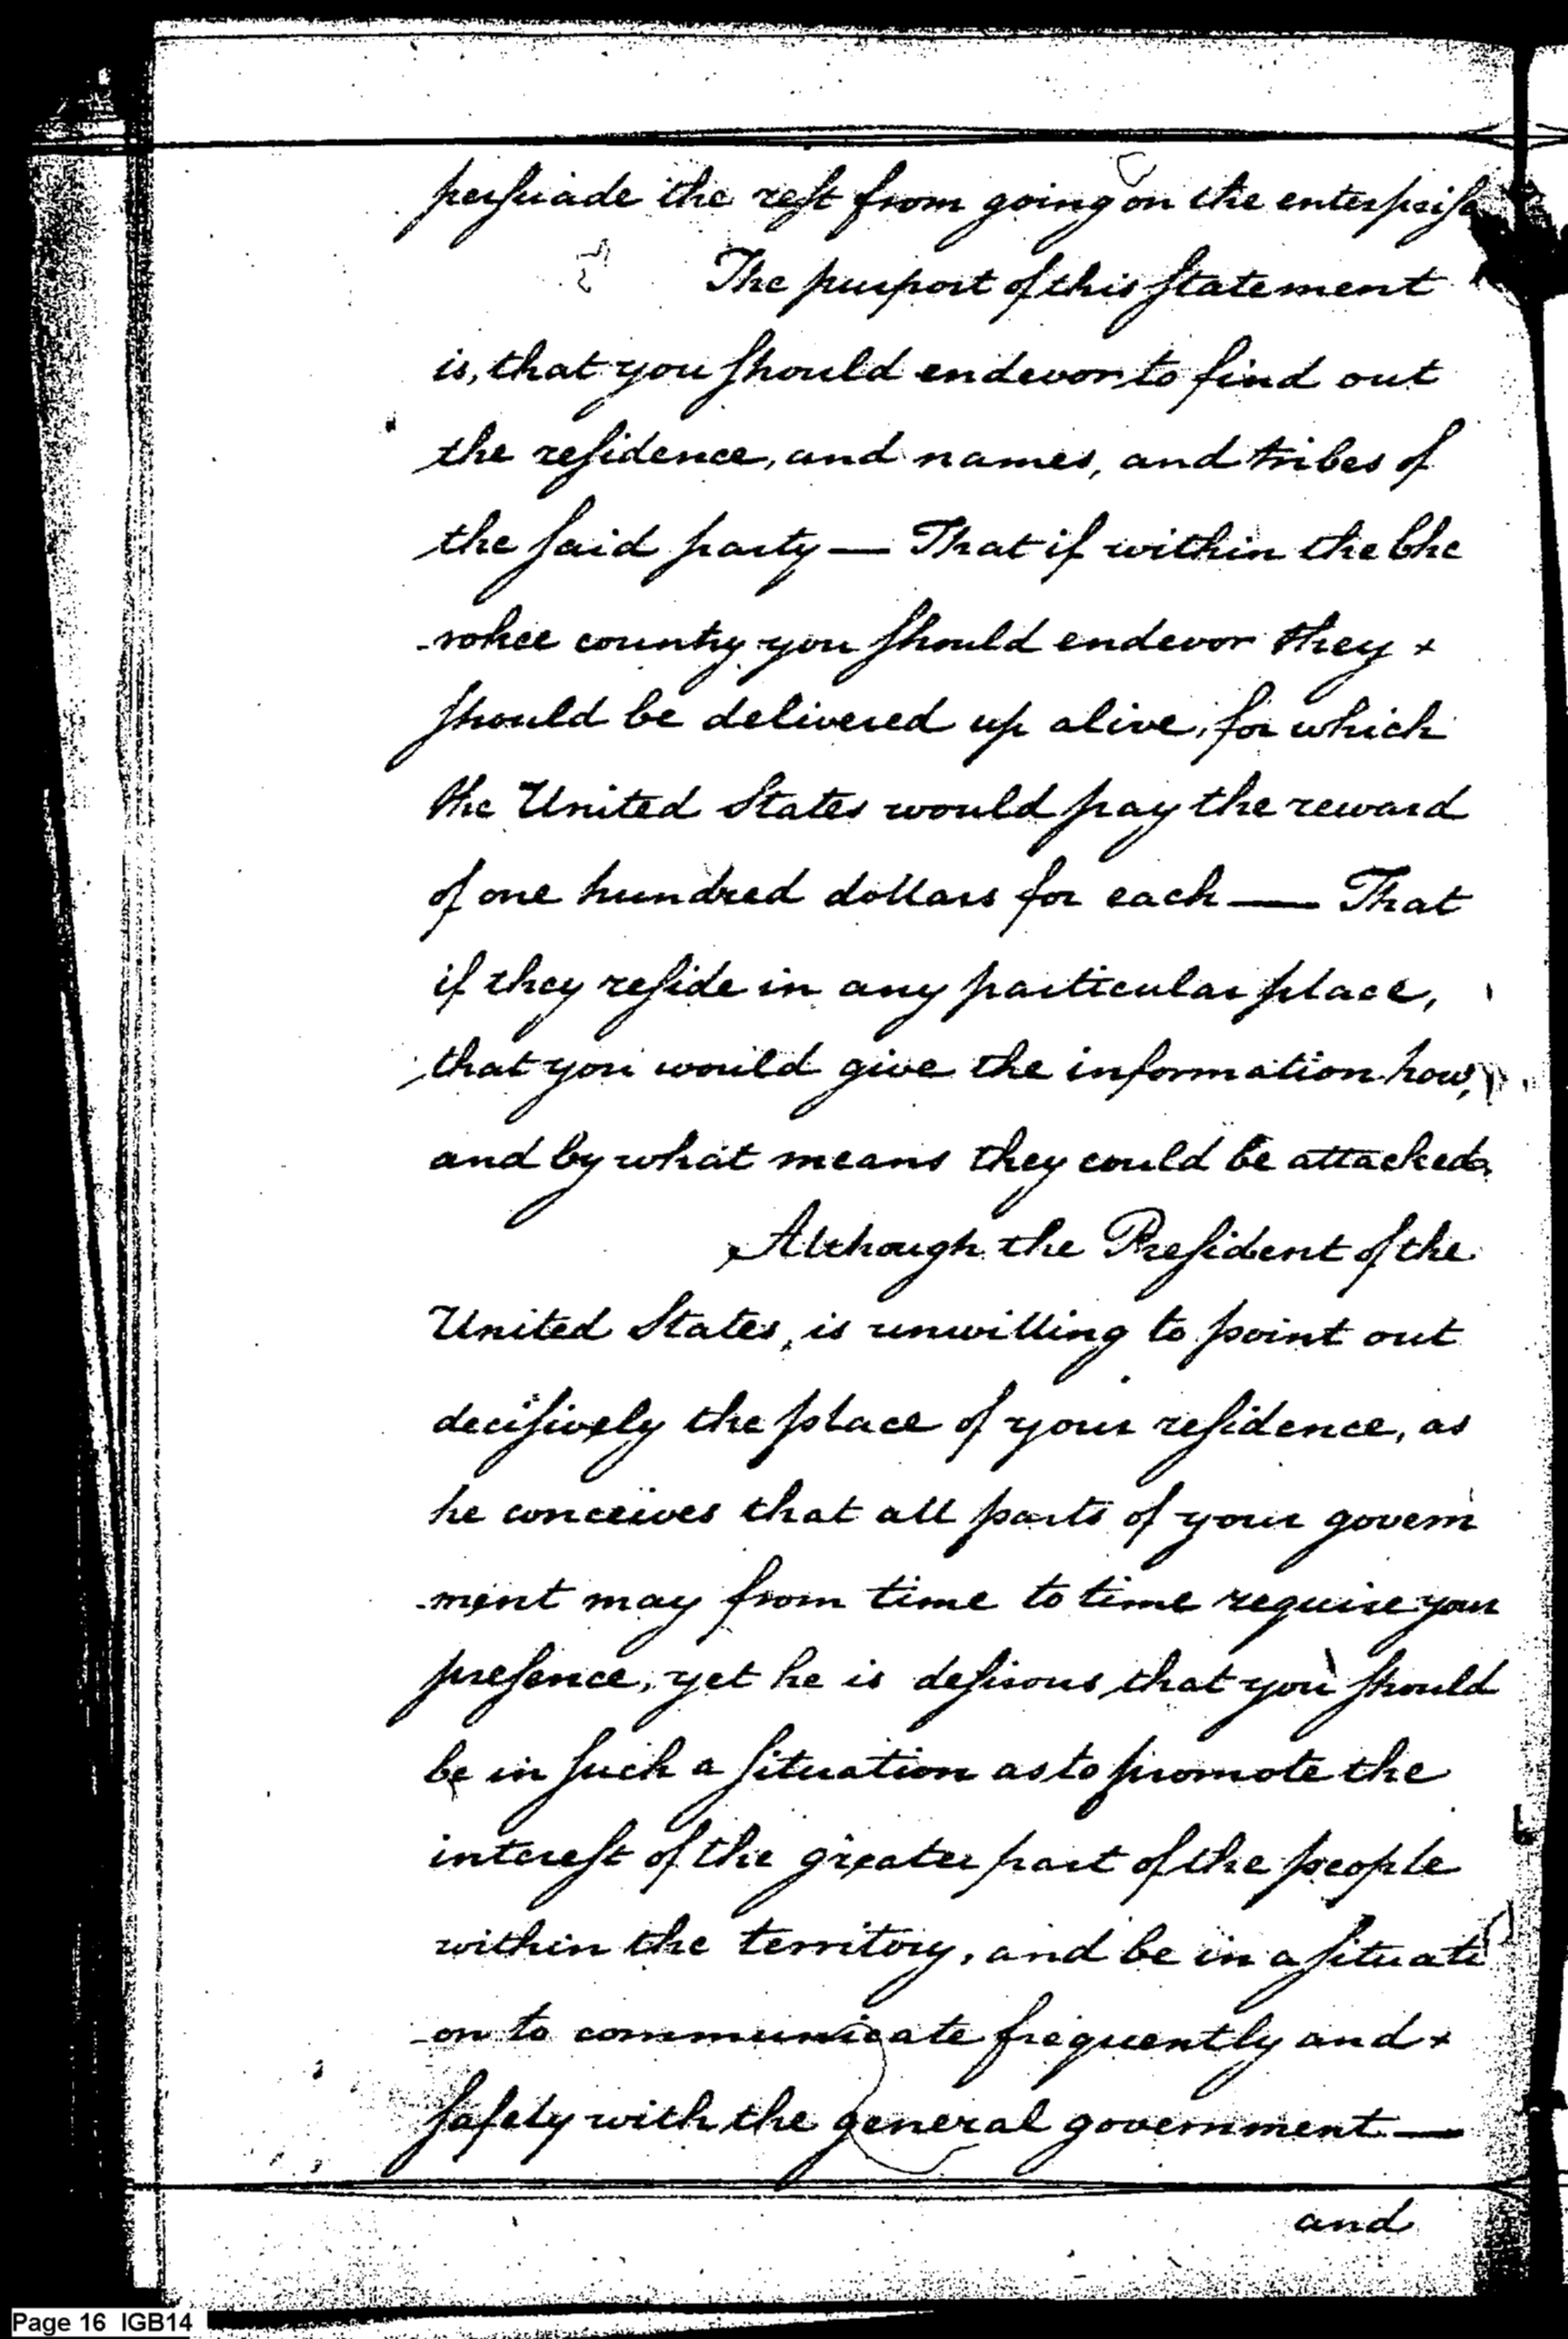 persuade the rest from going on the enterprise
The purport of this statement
is, that you should endevor to find out
the residence, and names, and tribes of
the said party — That if within the Che
-rokee country you should endevor they +
should be delivered up alive, for which
the United States would pay the reward
of one hundred dollars for each — That
if they reside in any particular place,
that you would give the information how,
and by what means they could be attacked.
Although the President of the
United States, is unwilling to point out
decisively the place of your residence, as
he conceives that all parts of your govern
-ment may from time to time require your
presence, yet he is desirous that you should
be in such a situation as to promote the
interest of the greater part of the people
within the territory, and be in a situati
-on to communicate frequently and +
safely with the general government —
and
Page 16 IGB14